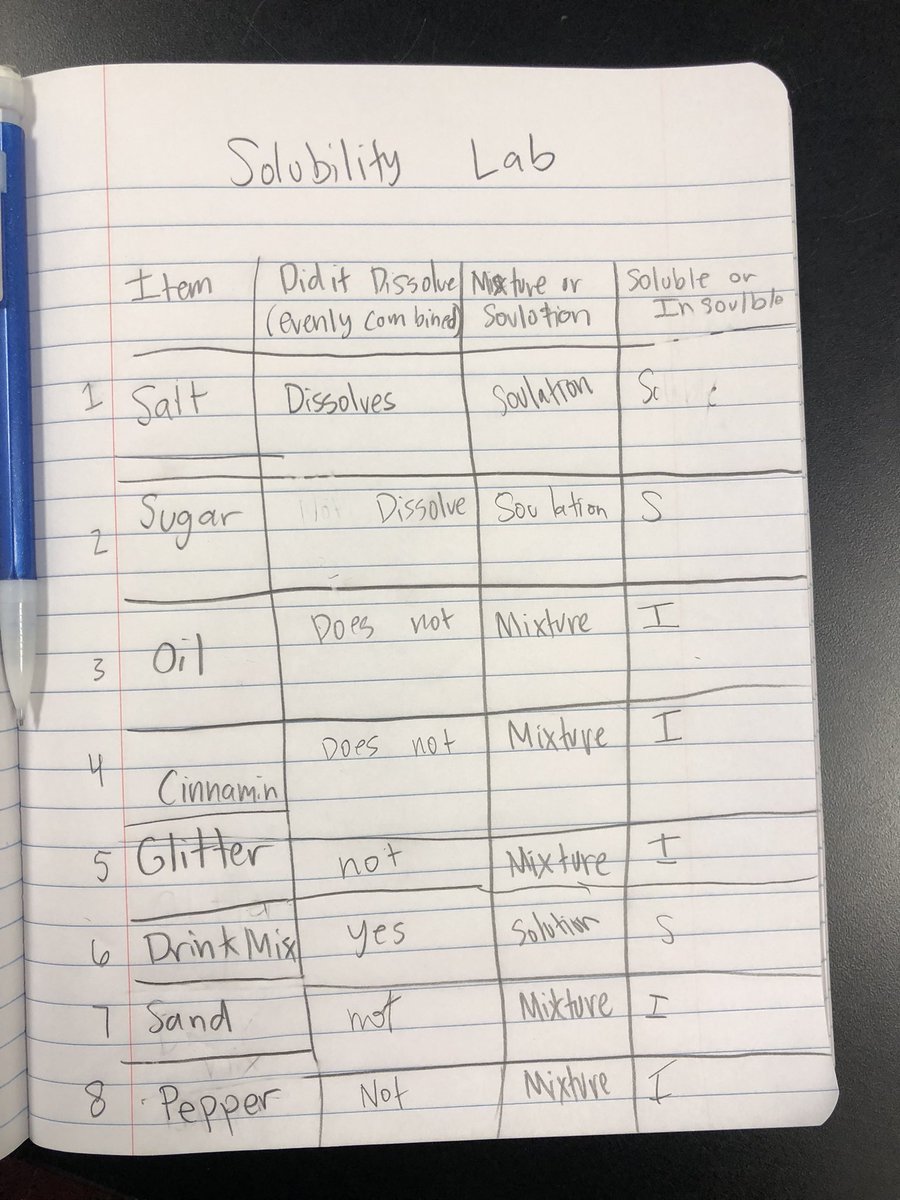 Solubility Lab
Item Did it Dissolve Mixture or Soluble or
(evenly combined) Soulotion Insoulble
1 Salt Dissolves Soulation
2 Sugar Dissolve Soulation S
3 Oil Does not Mixture I
4 Cinnamin Does not Mixture I
5 Glitter not Mixture I
6 Drink Mix yes Solution S
7 Sand not Mixture I
8 Pepper Not Mixture I